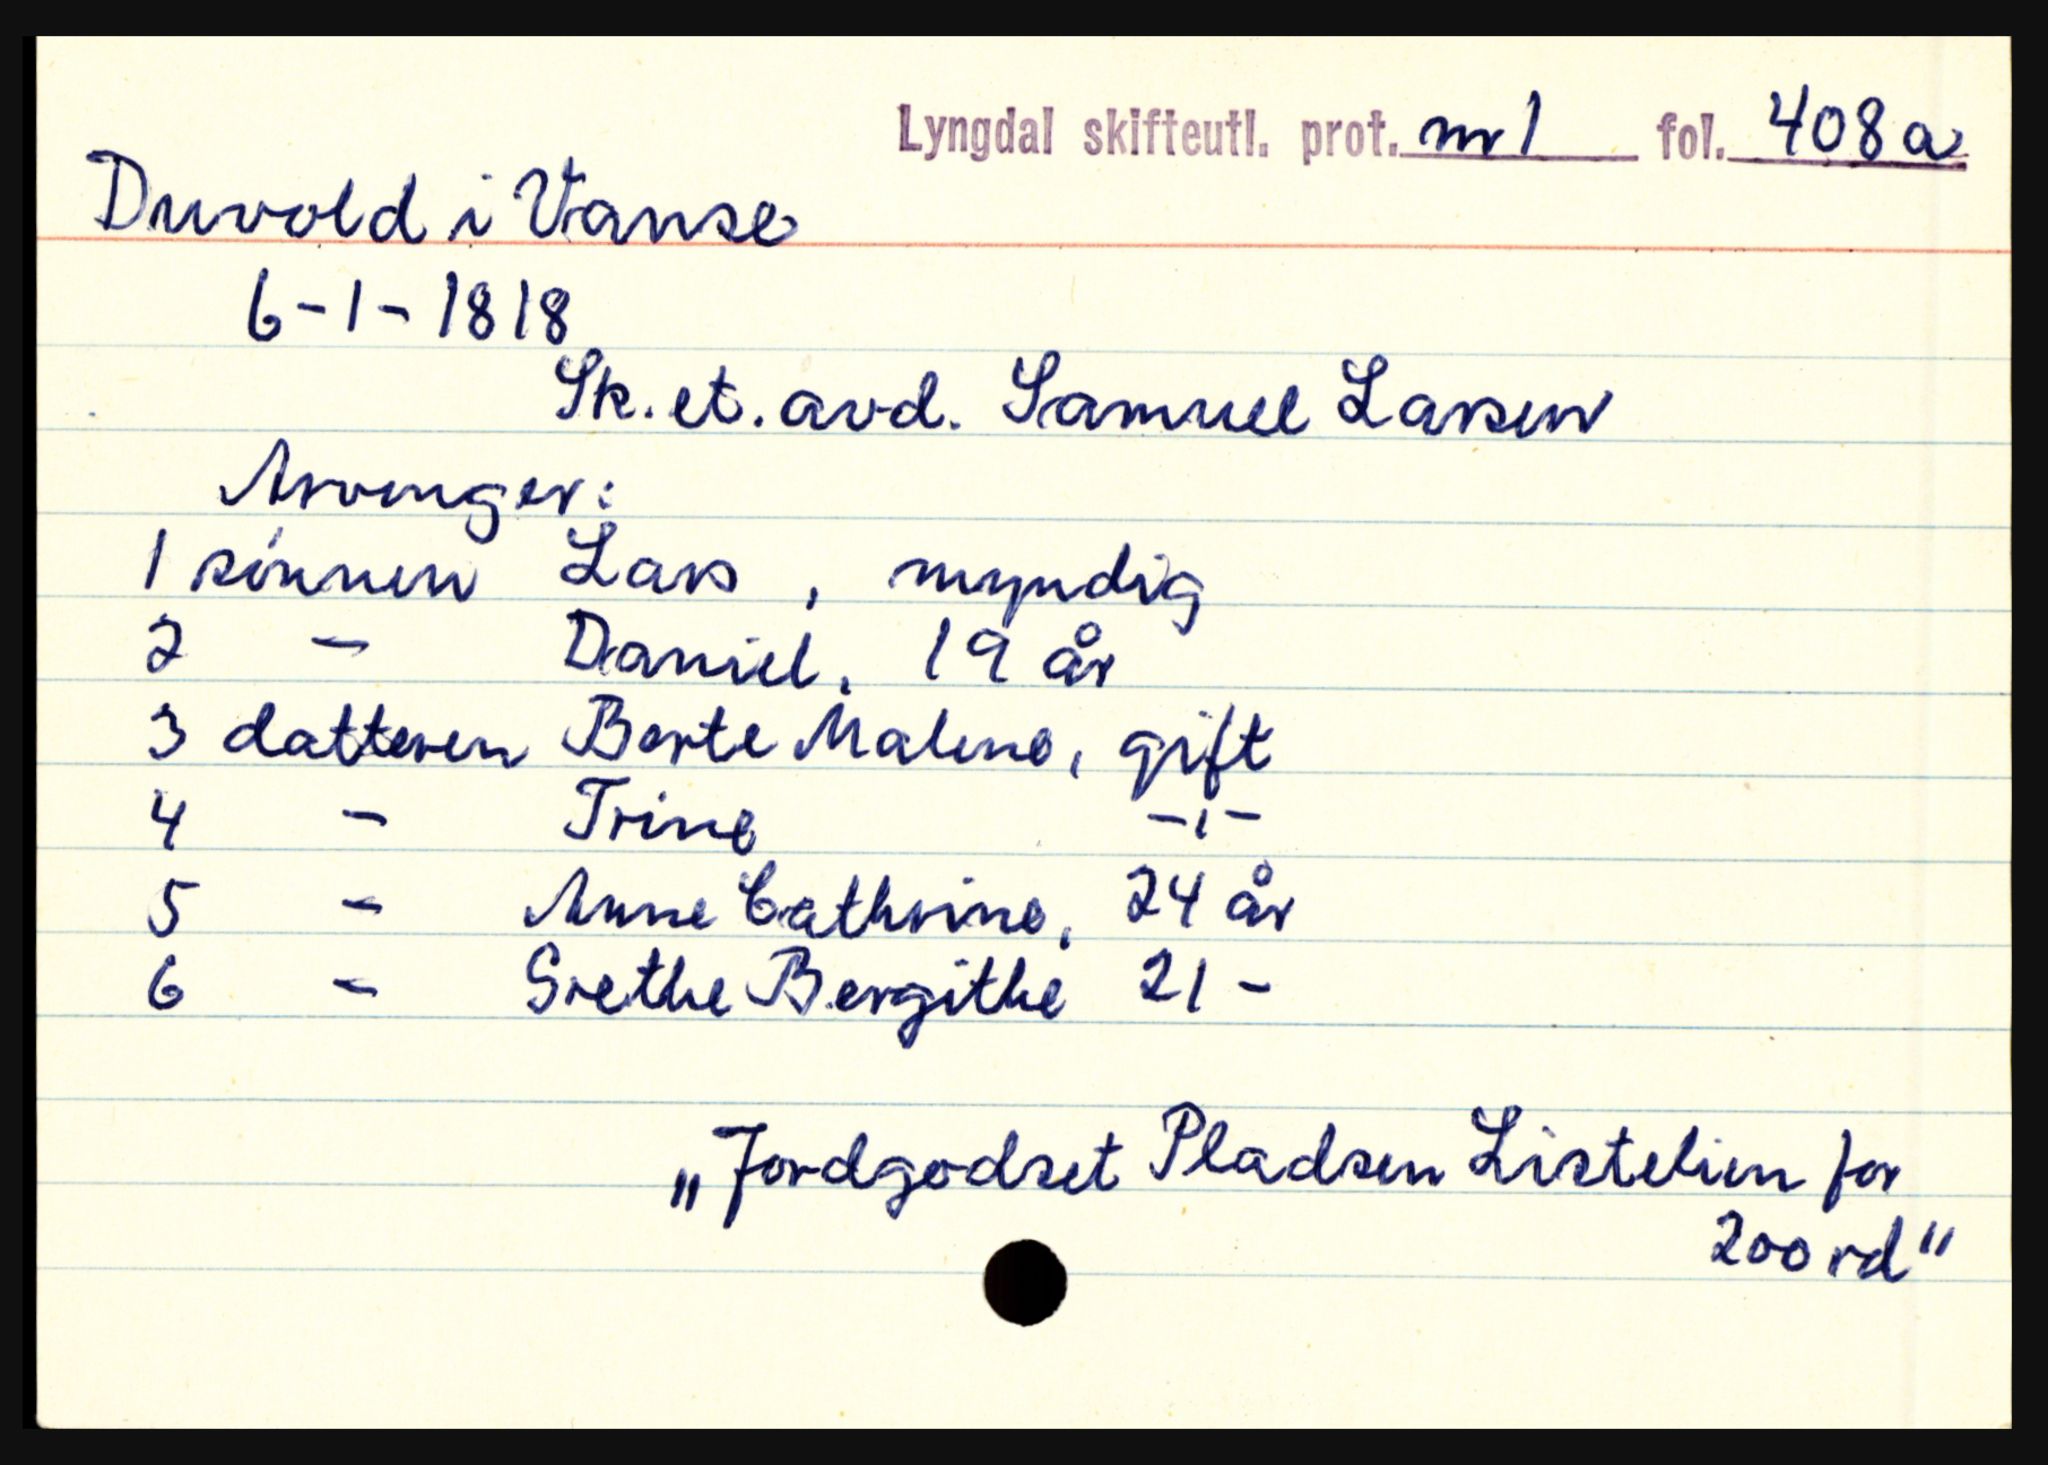 Lyngdal skifteutl. prot. nr 1 fol. 408a
Duvold i Vanse
6-1-1818
Sk. et. avd. Samuel Larsen
Arvinger:
1 sønnen Lars, myndig
2 - Daniel, 19 år
3 datteren Berte Malene, gift
4 - Trine -"-
5 - Anne Cathrine, 24 år
6 - Grethe Bergithe 21 -
„Jordgodset Pladsen Listelien for
200 rd"